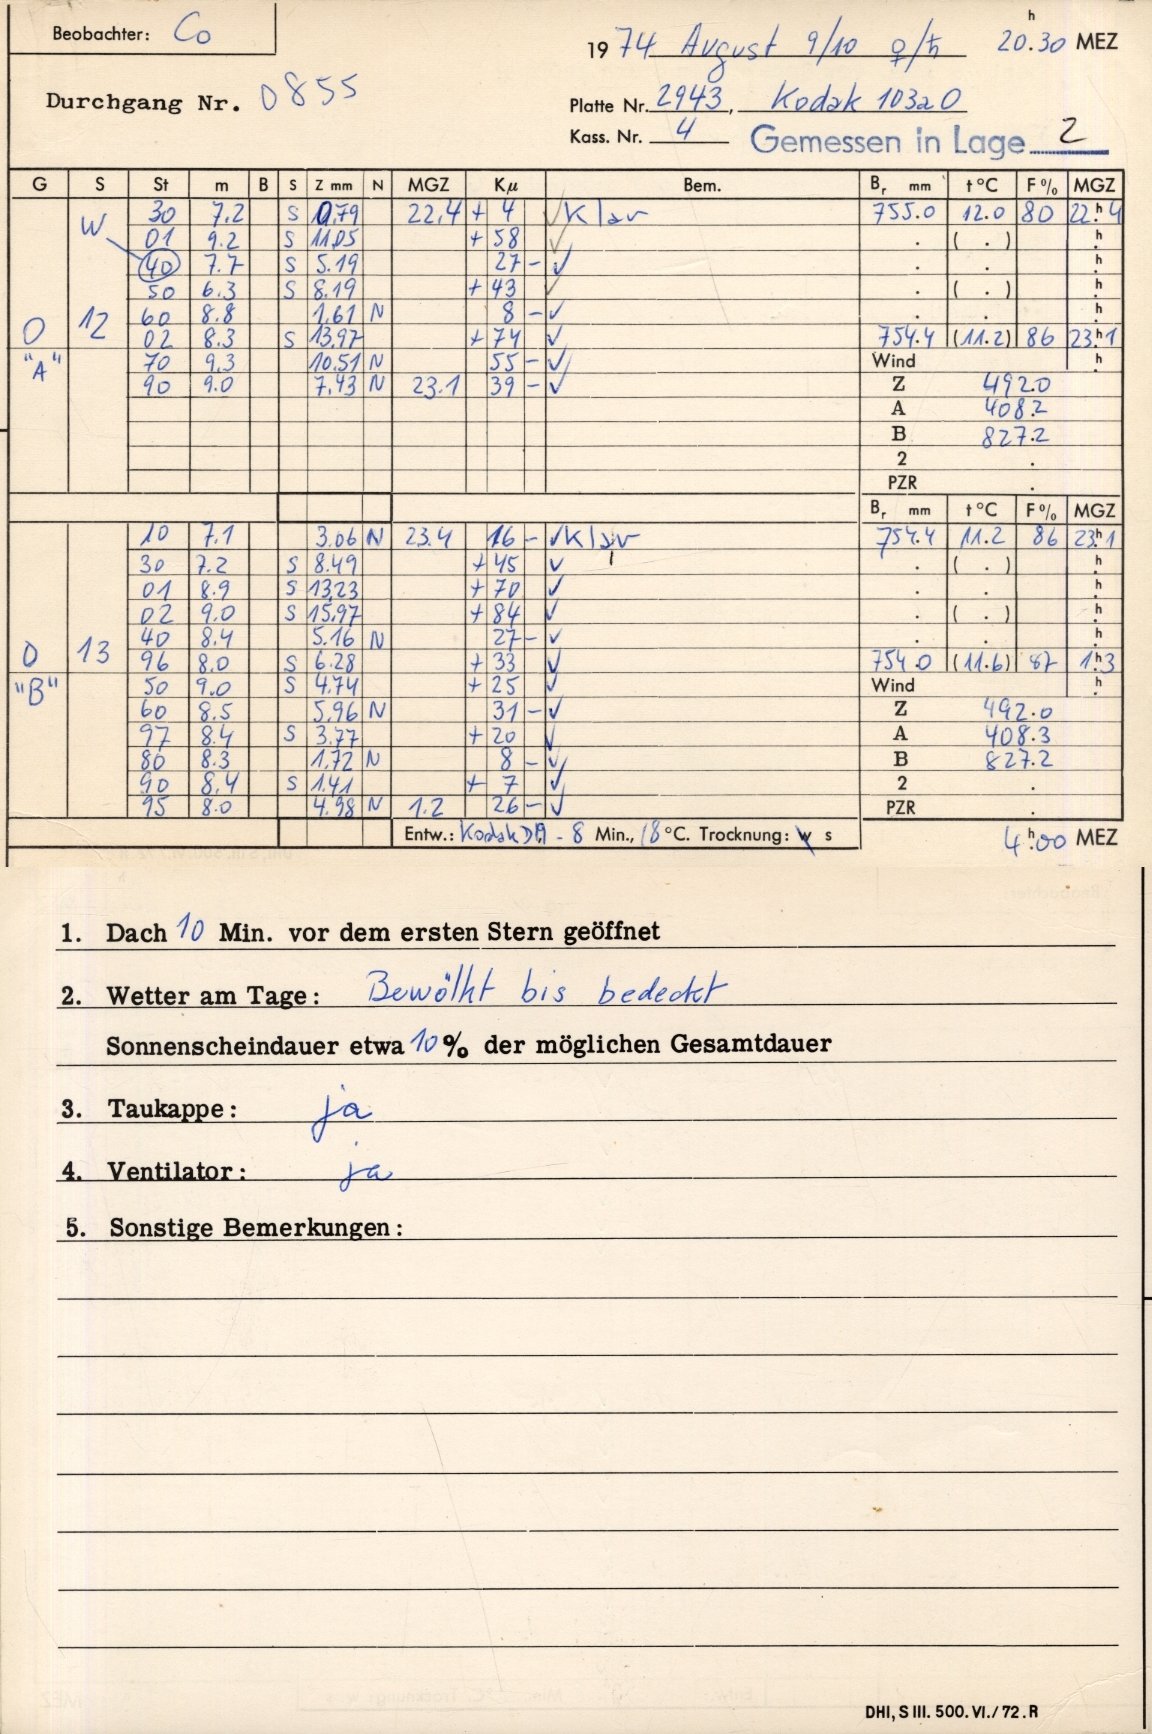 Beobachter: Co
1974 August 9/10 ♀/♄ 20.30 h MEZ
Durchgang Nr. 0855
Platte Nr. 2943, Kodak 103a O
Kass. Nr. 4 Gemessen in Lage 2
G S St m B S Z mm N MGZ Kμ Bem. Br mm t °C F % MGZ
W 30 7.2 S 0,79 22.4 + 4 ✓ Klar 755.0 12.0 80 22.h4
01 9.2 S 11.05 + 58 ✓ . ( . ) h.
40 7.7 S 5.19 27 - ✓ . . h.
50 6.3 S 8.19 + 43 ✓ . ( . ) h.
60 8.8 1.61 N 8 - ✓ . . h.
0 12 02 8.3 S 13.97 + 74 ✓ 754.4 (11.2) 86 23.h1
"A" 70 9.3 10.51 N 55 - ✓ Wind h.
90 9.0 7.43 N 23.1 39 - ✓ Z 492.0
A 408.2
B 827.2
2 .
PZR .
Br mm t °C F % MGZ
10 7.1 3.06 N 23.4 16 - ✓ Klar 754.4 11.2 86 23.h1
30 7.2 S 8.49 + 45 ✓ . ( . ) h.
01 8.9 S 13.23 + 70 ✓ . . h.
02 9.0 S 15.97 + 84 ✓ . ( . ) h.
40 8.4 5.16 N 27 - ✓ . . h.
0 13 96 8.0 S 6.28 + 33 ✓ 754.0 (11.6) 87 1.h3
"B" 50 9.0 S 4.74 + 25 ✓ Wind h.
60 8.5 5.96 N 31 - ✓ Z 492.0
97 8.4 S 3.77 + 20 ✓ A 408.3
80 8.3 1.72 N 8 - ✓ B 827.2
90 8.4 S 1.41 + 7 ✓ 2 .
95 8.0 4.98 N 1.2 26 - ✓ PZR .
Entw.: Kodak D19 - 8 Min., 18 °C. Trocknung: w s 4.h00 MEZ
1. Dach 10 Min. vor dem ersten Stern geöffnet
2. Wetter am Tage: Bewölkt bis bedeckt
Sonnenscheindauer etwa 10 % der möglichen Gesamtdauer
3. Taukappe: ja
4. Ventilator: ja
5. Sonstige Bemerkungen:
DHI, S III. 500. VI./72. R